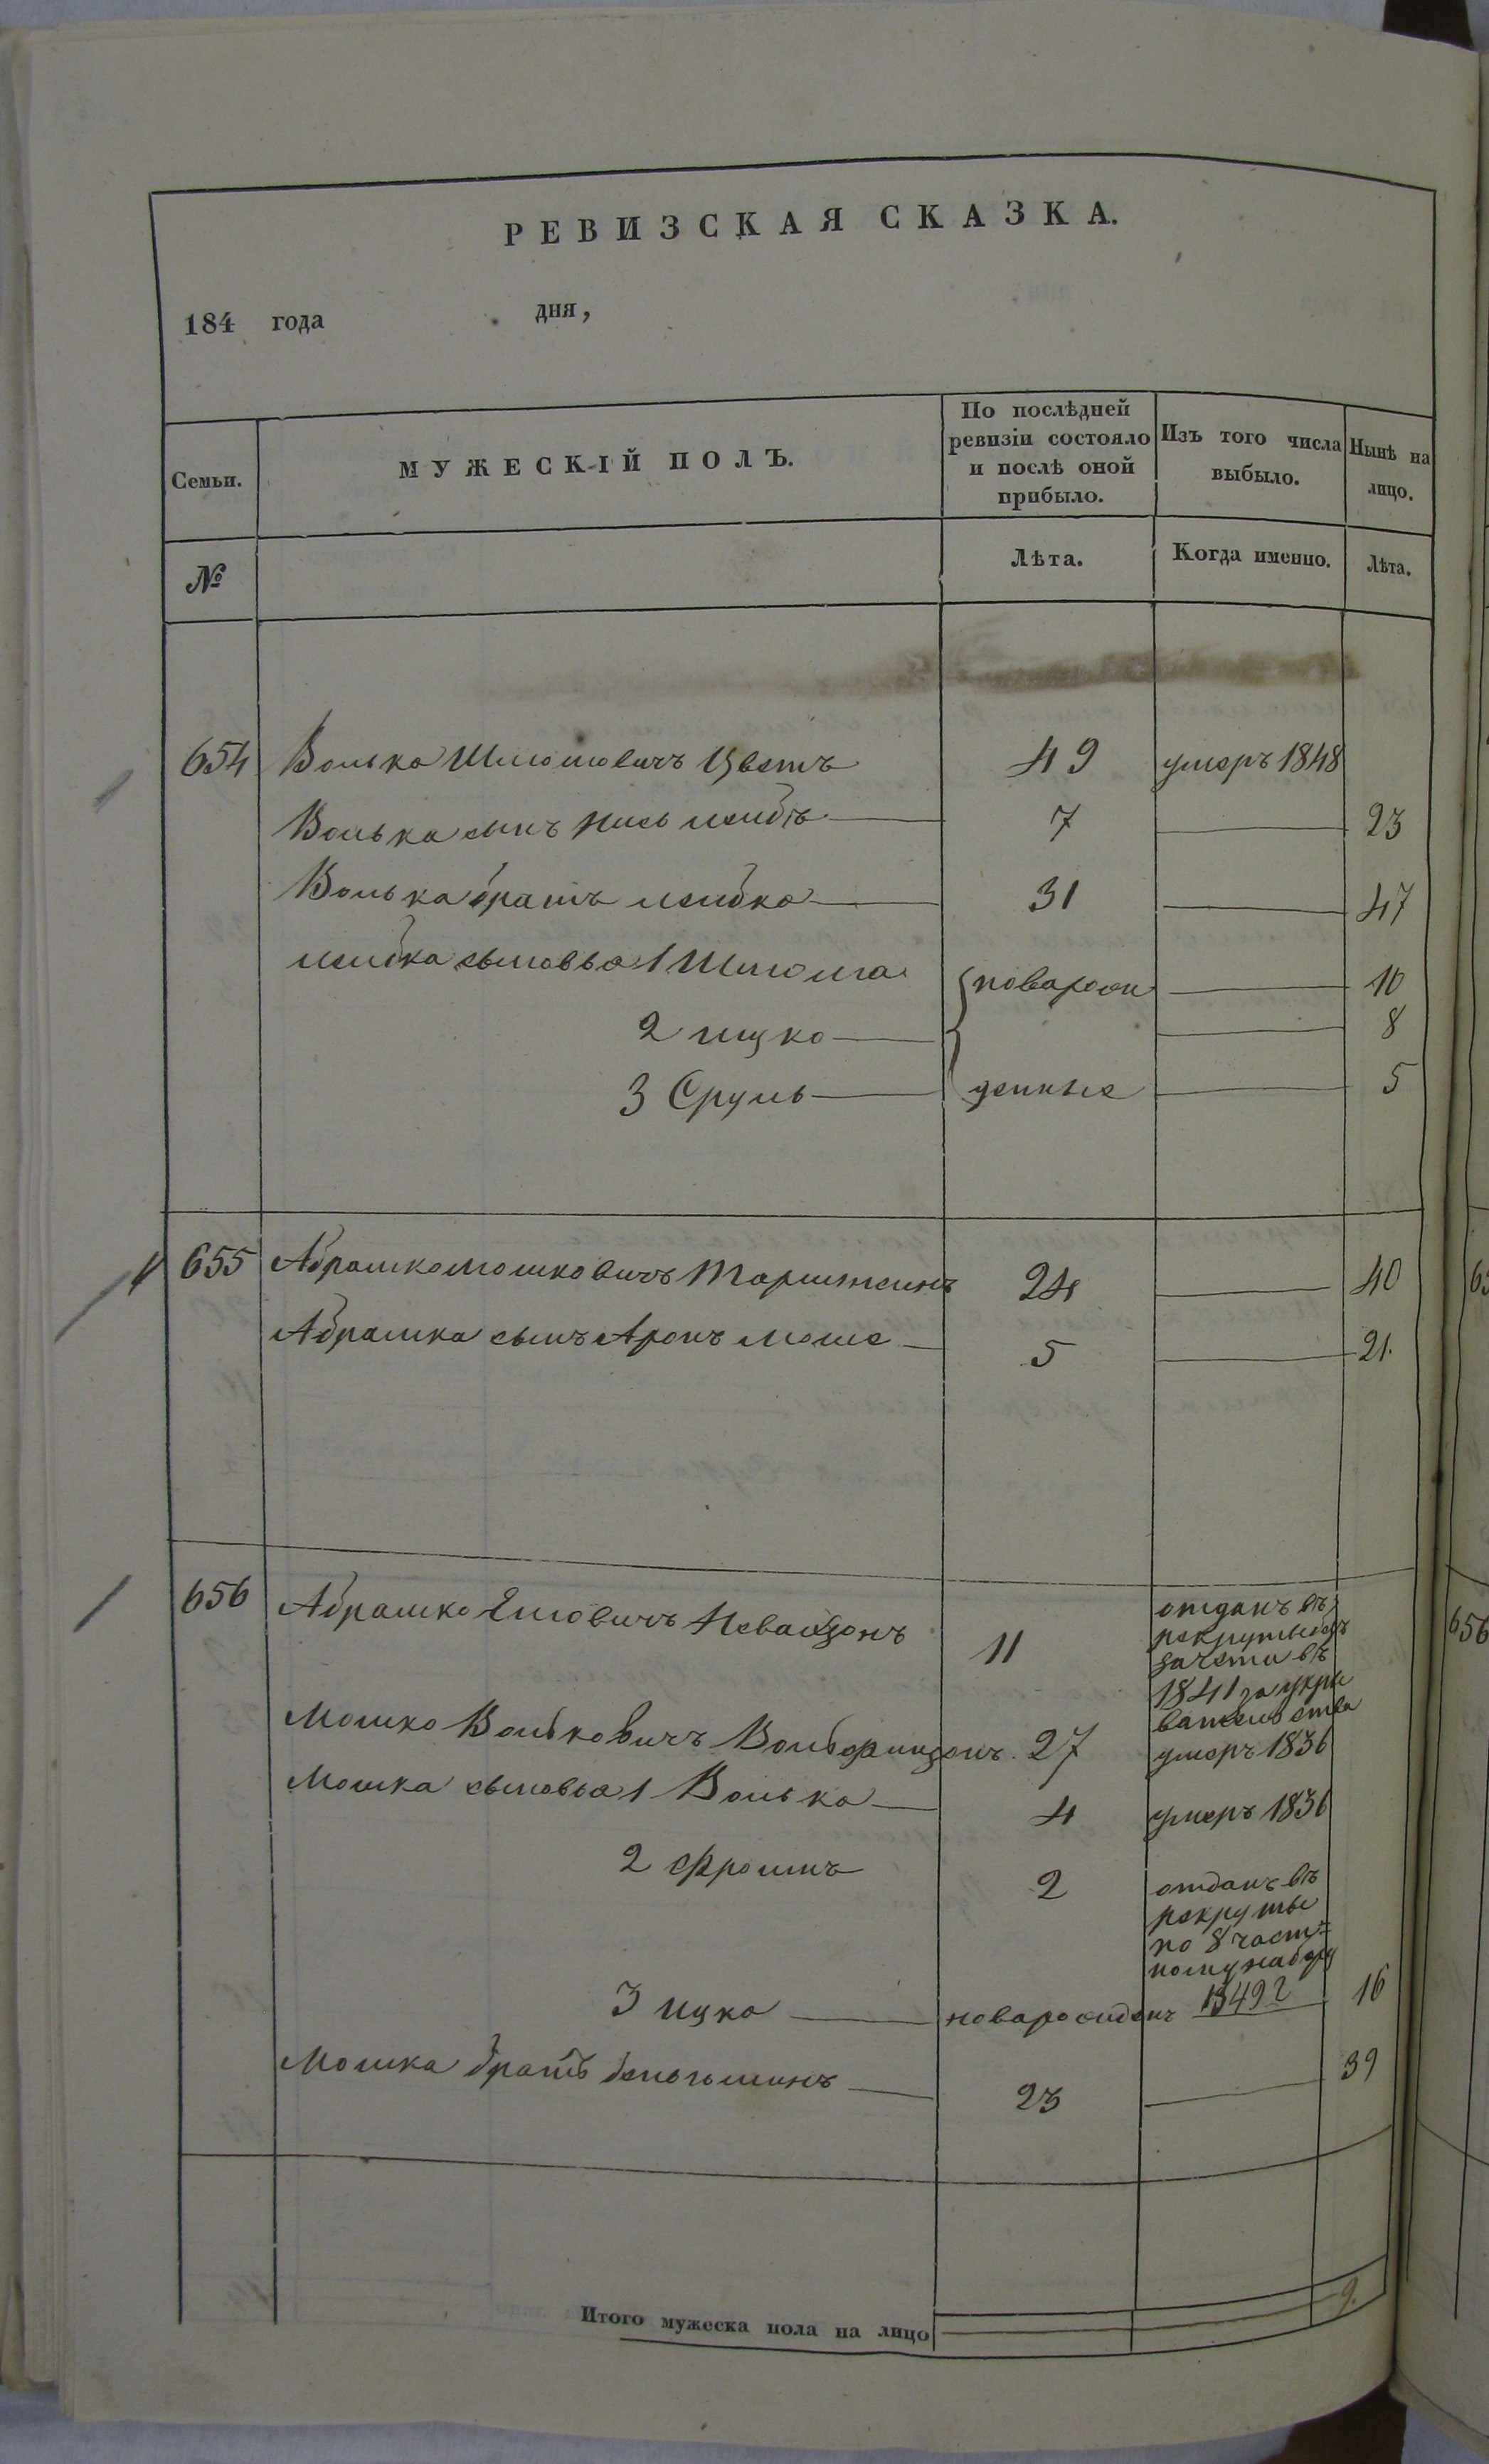 РЕВИЗСКАЯ СКАЗКА.
184 года дня,
Семьи. МУЖЕСКІЙ ПОЛЪ. По послѣдней ревизіи состояло и послѣ оной прибыло. Изъ того числа выбыло. Нынѣ на лицо.
№ Лѣта. Когда именно. Лѣта.
654 Волько Шломовичъ Цветъ 49 умеръ 1848
Волька сынъ лейбъ 7 23
Волька братъ лейбко 31 47
лейбка сыновья 1 Шлома новарожденные 10
2 ицко 8
3 Сруль 5
655 Абрашко мошковичъ 24 40
Абрашка сынъ Аронъ моше 5 21.
656 Абрашко 11 отданъ въ
рекруты безъ
зачета въ
1841 за укры
вательства
Мошко Вольковичъ 27 умеръ 1836
Мошка сыновья 1 Волько 4 умеръ 1836
2 Фроимъ 2 отданъ въ
рекруты
по 8 част=
ному набору
1849 г
3 ицко новарожденъ 16
Мошка братъ 23 39
Итого мужеска пола на лицо 9.
656